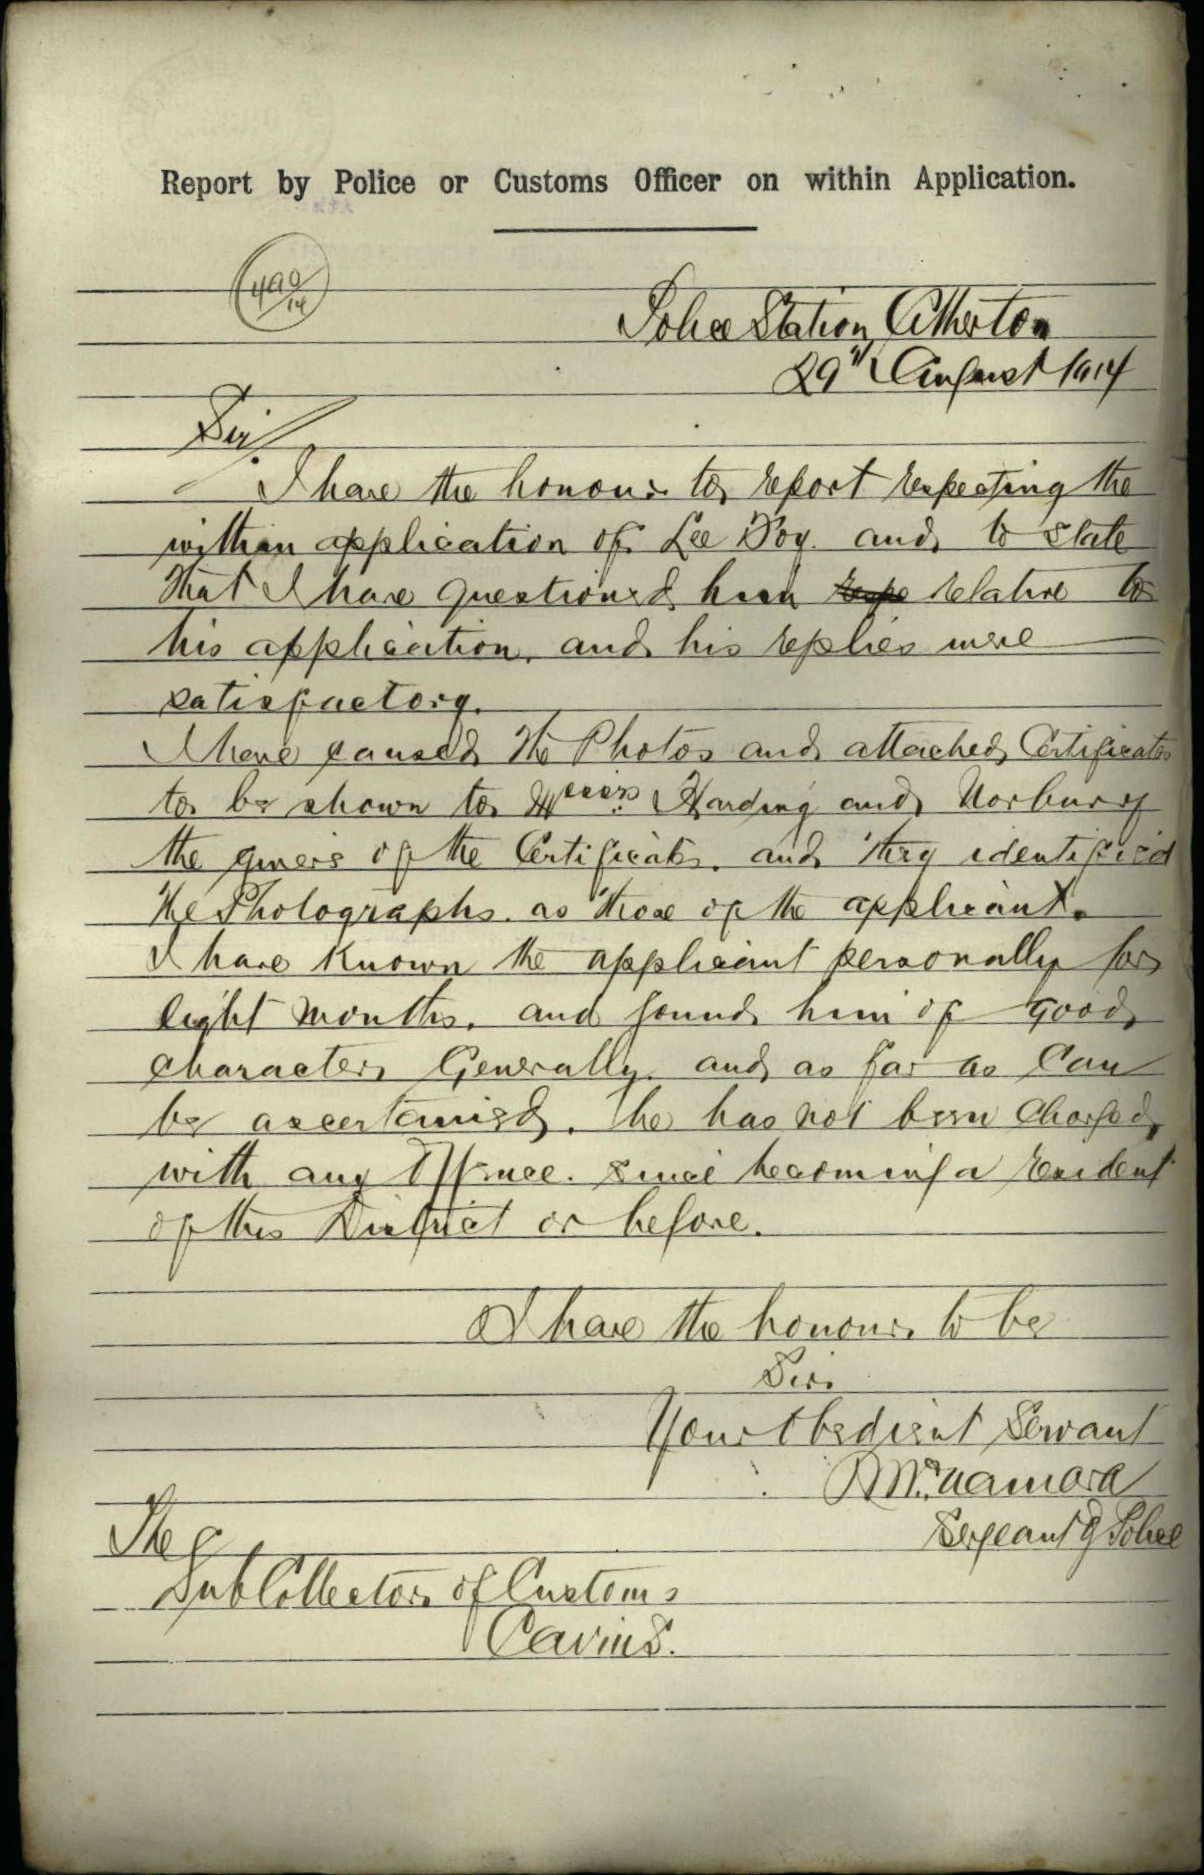 Report by Police or Customs Officer on within Application.
490/14
Police Station Atherton
29th August 1914
Sir/.
I have the honour to report respecting the
within application of Lee Doy. and to state
that I have questioned him respe relative to
his application. and his replies were
satisfactory.
I have caused the Photos and attached Certificates
to be shown to Messrs Harding and Norbury
the givers of the Certificates. and they identified
the Photographs. as those of the applicant.
I have known the applicant personally for
eight months. and found him of good
character Generally. and as far as can
be ascertained. he has not been charged
with any Offence. since becoming a resident
of this District or before.
I have the honour to be
Sir.
Your Obedient Servant
McNamara
Sergeant of Police
The
Sub Collector of Customs
Cairns.